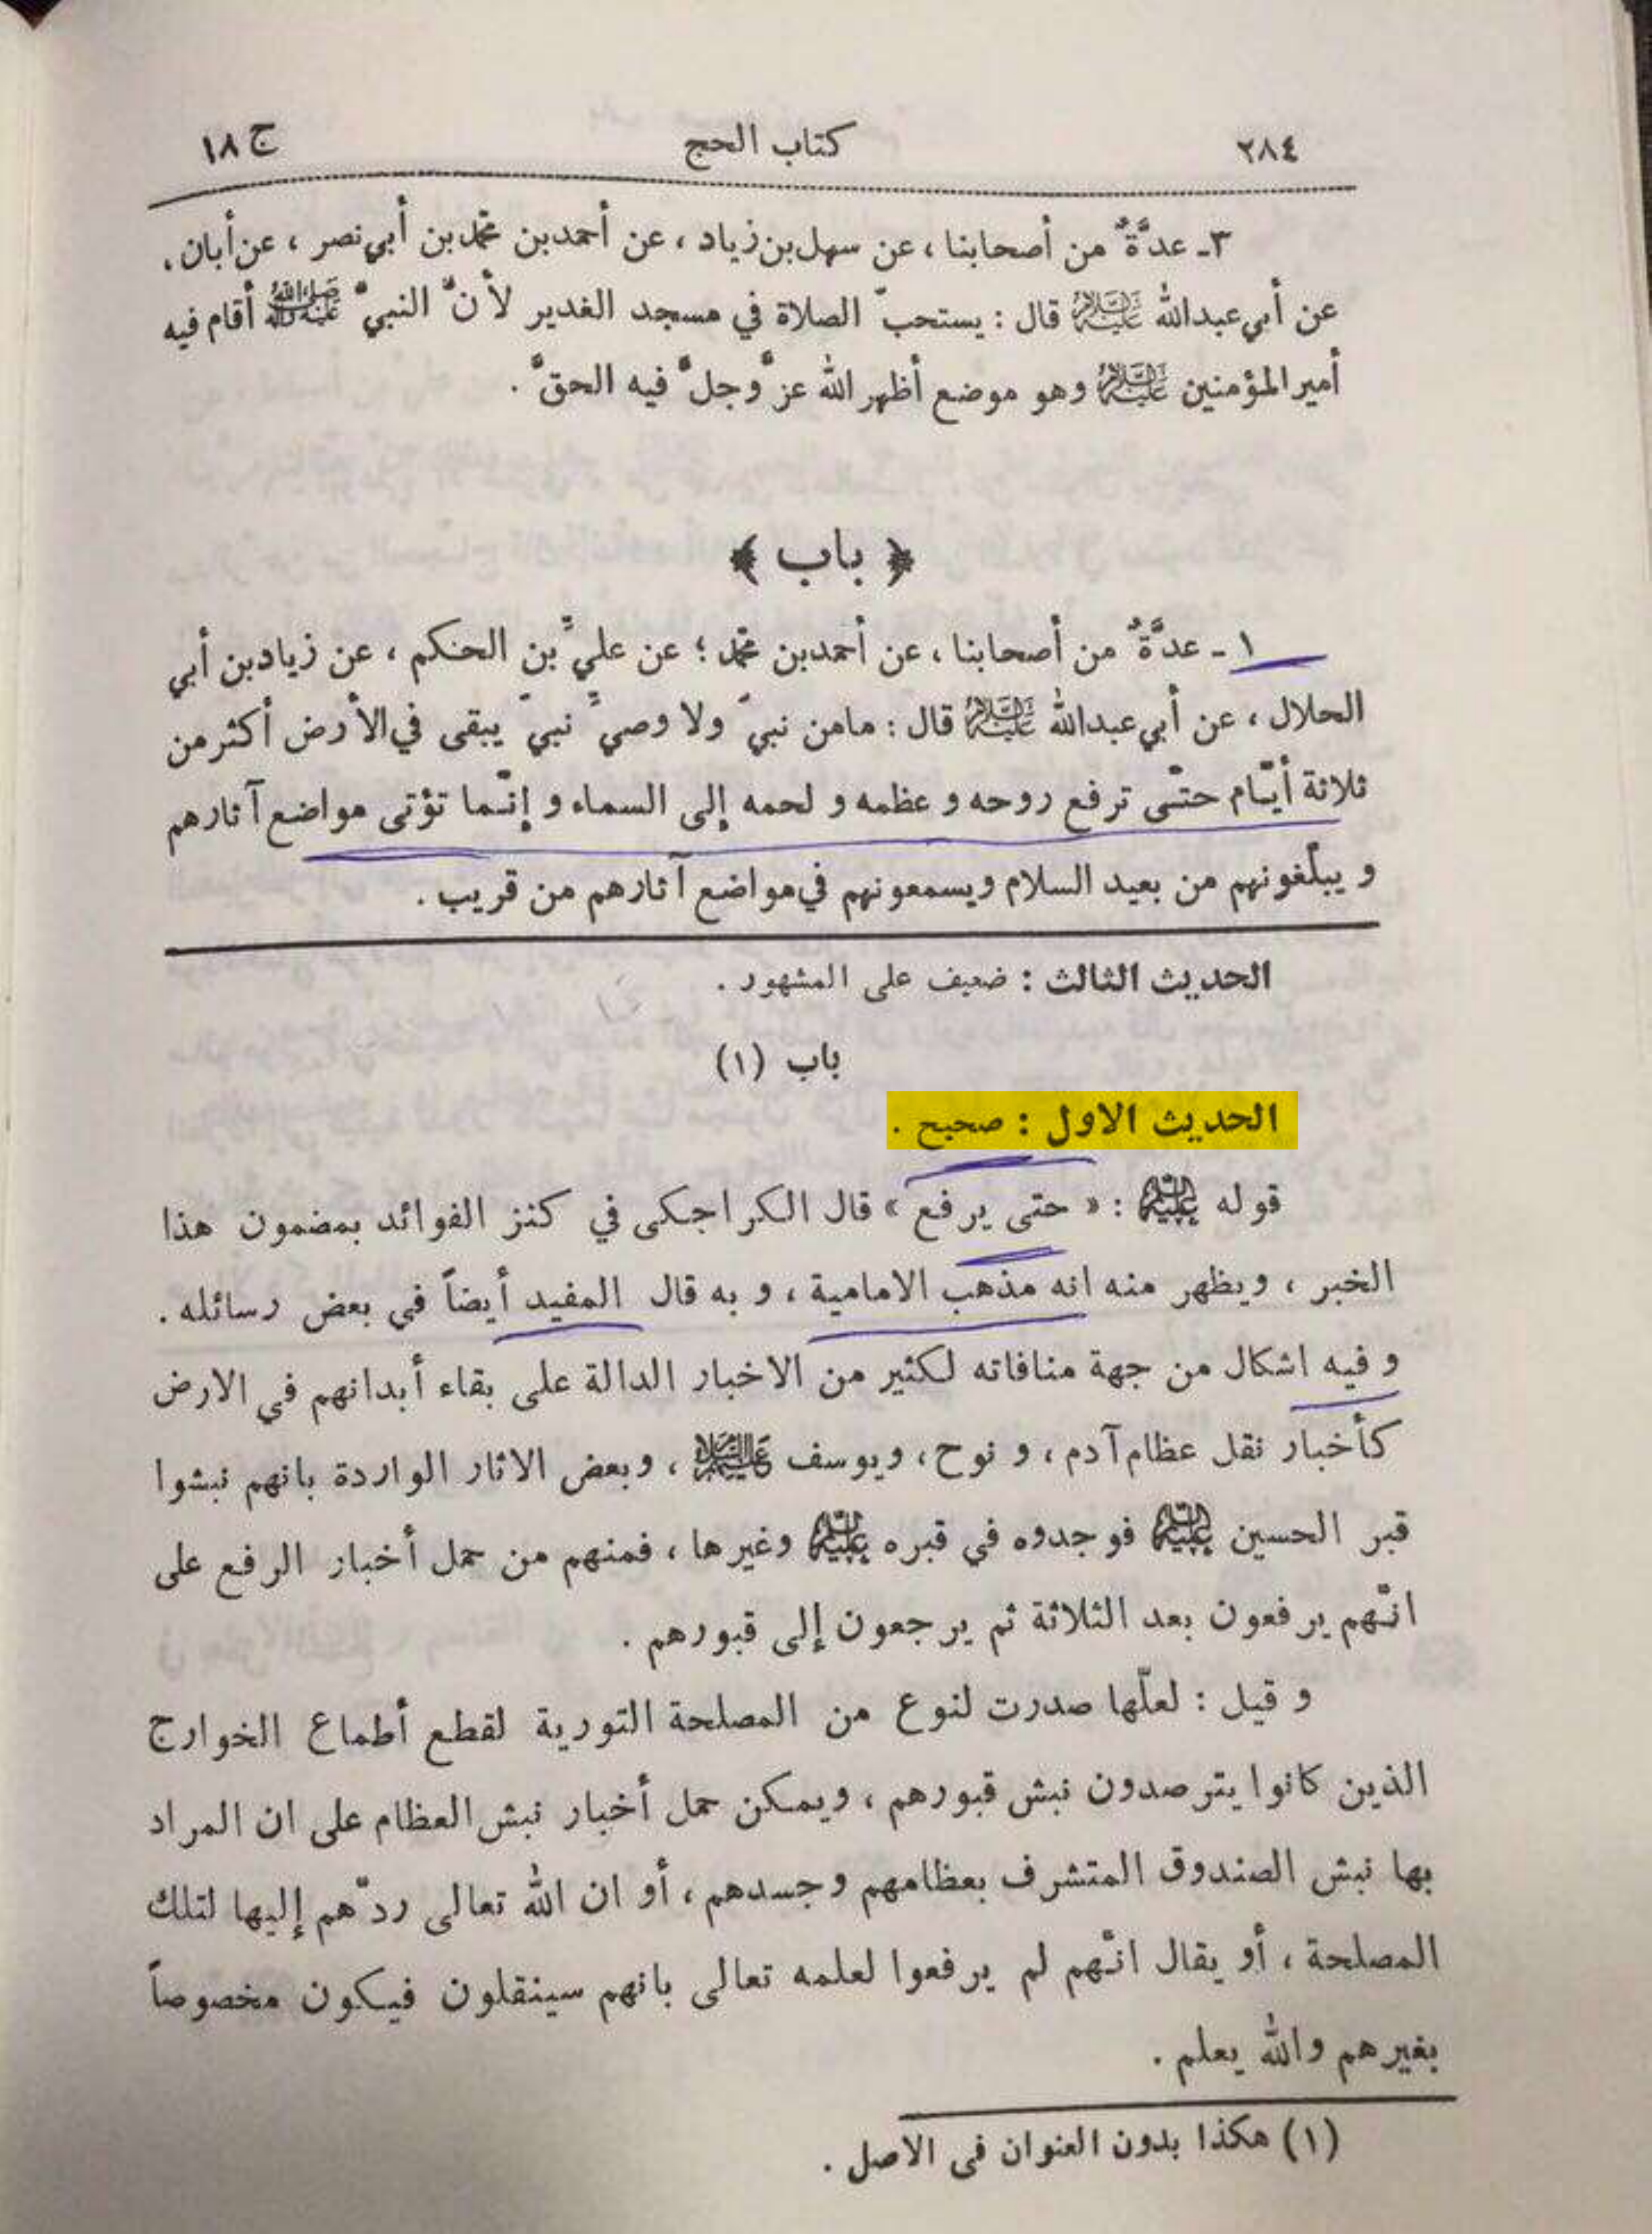 ٢٨٤ كتاب الحج ج ١٨
٣ـ عدَّةٌ من أصحابنا ، عن سهل بن زياد ، عن أحمد بن محمد بن أبي نصر ، عن أبان ،
عن أبي عبدالله عليه السلام قال : يستحبّ الصلاة في مسجد الغدير لأنَّ النبيَّ صلى الله عليه وآله أقام فيه
أمير المؤمنين عليه السلام وهو موضع أظهر الله عزَّ وجلَّ فيه الحقَّ .
﴿ باب ﴾
١ ـ عدَّةٌ من أصحابنا ، عن أحمد بن محمد ؛ عن عليِّ بن الحكم ، عن زياد بن أبي
الحلال ، عن أبي عبدالله عليه السلام قال : مامن نبيّ ولا وصيِّ نبيّ يبقى في الأرض أكثر من
ثلاثة أيّام حتّى ترفع روحه و عظمه و لحمه إلى السماء و إنّما تؤتى مواضع آثارهم
و يبلّغونهم من بعيد السلام ويسمعونهم في مواضع آثارهم من قريب .
الحديث الثالث : ضعيف على المشهور .
باب (١)
الحديث الاول : صحيح .
قوله عليه السلام : « حتى يرفع » قال الكراجكى في كنز الفوائد بمضمون هذا
الخبر ، ويظهر منه انه مذهب الامامية ، و به قال المفيد أيضاً في بعض رسائله .
و فيه اشكال من جهة منافاته لكثير من الاخبار الدالة على بقاء أبدانهم في الارض
كأخبار نقل عظام آدم ، و نوح ، ويوسف عليهم السلام ، وبعض الاثار الواردة بانهم نبشوا
قبر الحسين عليه السلام فوجدوه في قبره عليه السلام وغيرها ، فمنهم من حمل أخبار الرفع على
انّهم يرفعون بعد الثلاثة ثم يرجعون إلى قبورهم .
و قيل : لعلّها صدرت لنوع من المصلحة التورية لقطع أطماع الخوارج
الذين كانوا يترصدون نبش قبورهم ، ويمكن حمل أخبار نبش العظام على ان المراد
بها نبش الصندوق المتشرف بعظامهم وجسدهم ، أو ان الله تعالى ردّهم إليها لتلك
المصلحة ، أو يقال انّهم لم يرفعوا لعلمه تعالى بانهم سينقلون فيكون مخصوصاً
بغيرهم والله يعلم .
(١) هكذا بدون العنوان فى الاصل .